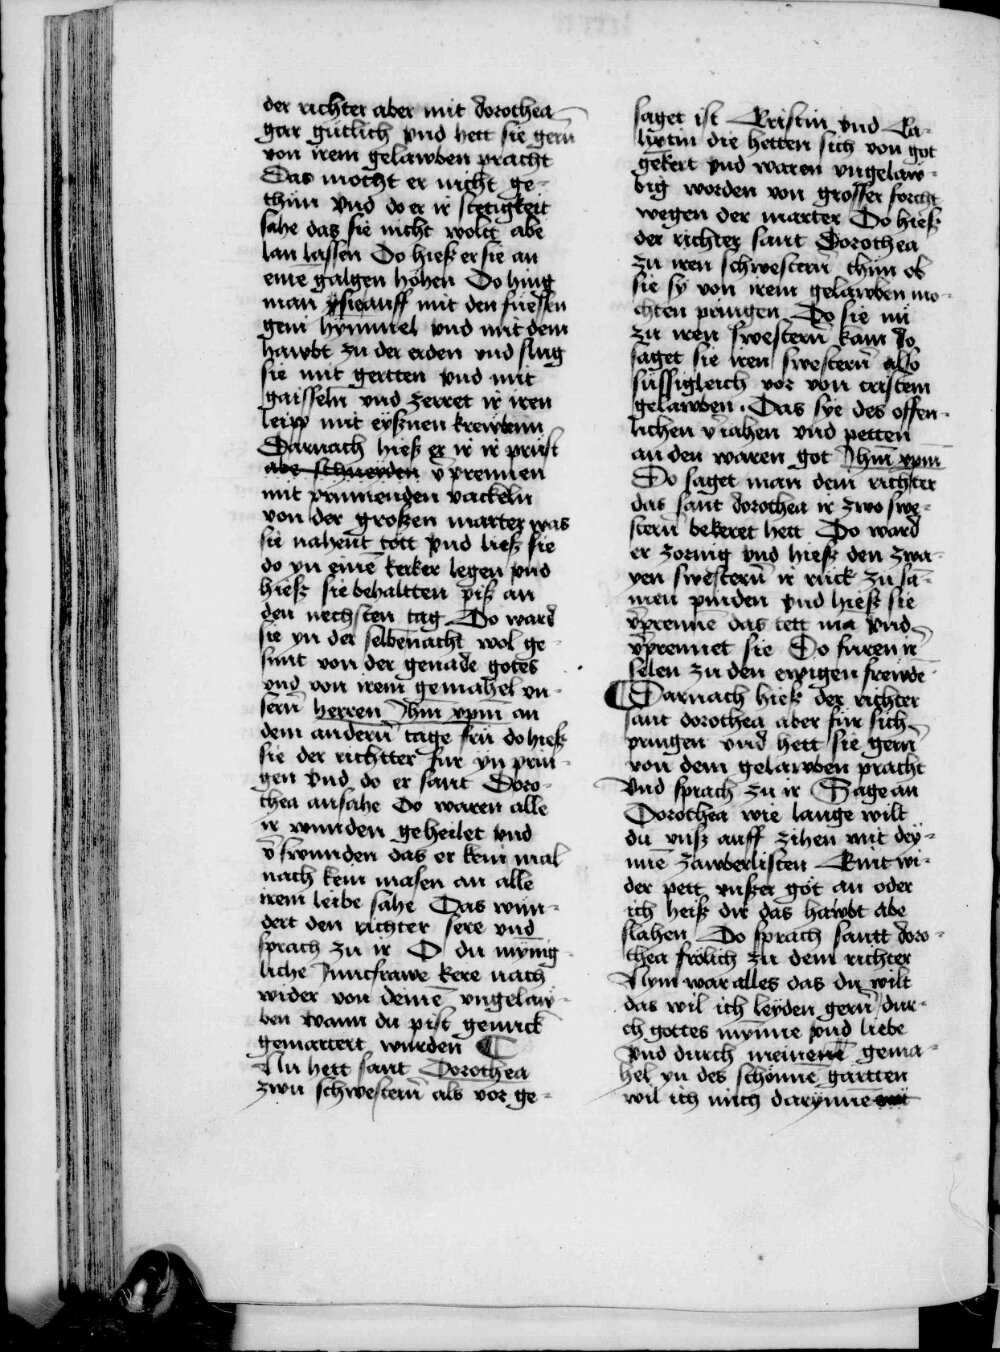 der richter aber mit dorothea
gar gütlich vnd hett sie gern̄
von irem gelawben pracht
Das mocht er nicht ge-
thün vnd do er ir stetigkeit
sahe das sie nicht wolt abe
lan lassen Do hieß er sie an
eine galgen höhen Do hing
man sie auff mit den füessen
gem hymmel vnd mit dem
hawbt zu der erden vnd slug
sie mit gertten vnd mit
gaisseln vnd zerret ir iren
leipp mit eyßnen krewln
Darnach hieß er ir ir prust
abe schneyden v̄prennen
mit prinnenden vackeln
von der großen marter was
sie nahent tott vnd ließ sie
do yn eine kerker legen vnd
hieß sie behaltten piß an
den nechsten tag Do ward
sie yn der selben nacht wol ge-
sunt von der genade gotes
vnd von irem gemahel vn-
sern̄ herren Jhm̄ xpm̄ an
dem andern̄ tage frü do hieß
sie der richtter fur yn prin-
gen vnd do er sant Doro-
thea ansahe Do waren alle
ir wunden geheilet vnd
v̄swunden das er kein mal
nach kein masen an alle
irem leibe sahe Das wun-
dert den richter sere vnd
sprach zu ir O du mynig-
liche Junncfrawe kere nach
wider von deinē vngelaw-
ben wann du pist genuck
gemartert wurden
Nu hett sant Dorothea
zwu schwestern̄ als vor ge-
saget ist Kristin vnd Ka-
lixtin die hetten sich von got
gekert vnd waren vngelaw-
big worden von grosser forcht
wegen der marter Do hieß
der richter sant Dorothea
zu iren schwestern̄ thün ob
sie sy von irem gelawben mo-
chten pringen Do sie nu
zu iren swestern̄ kam do
saget sie iren swestern̄ also
süssigleich vor von cristem
gelawben Das sye des offen-
lichen v̄iahen vnd petten
an den waren got Jhm̄ xpm̄
Do saget man dem richter
das sant dorothea ir zwo swe-
stern̄ bekeret hett Do ward
er zornig vnd hieß den zwa-
yen swestern̄ ir rück zu sā-
men pinden vnd hieß sie
v̄prennē das tett ma vnd
v̄prennet sie Do furen ir
selen zu den ewigen frewde
Darnach hieß der richter
sant dorothea aber für sich
pringen vnd hett sie gern̄
von dem gelawben pracht
vnd sprach zu ir Sage an
Dorothea wie lange wilt
du vnß auff zihen mit dey-
nnē zawberlisten Kint wi-
der pett vnßer got an oder
ich heiß dir das hawbt abe
slahen Do sprach santt doro-
thea frölich zu dem richter
Nym war alles das du wilt
das wil ich leyden gern̄ dur-
ch gottes mynne vnd liebe
vnd durch meinenē gema-
hel yn des schönnē gartten
wil ich mich daryinnē